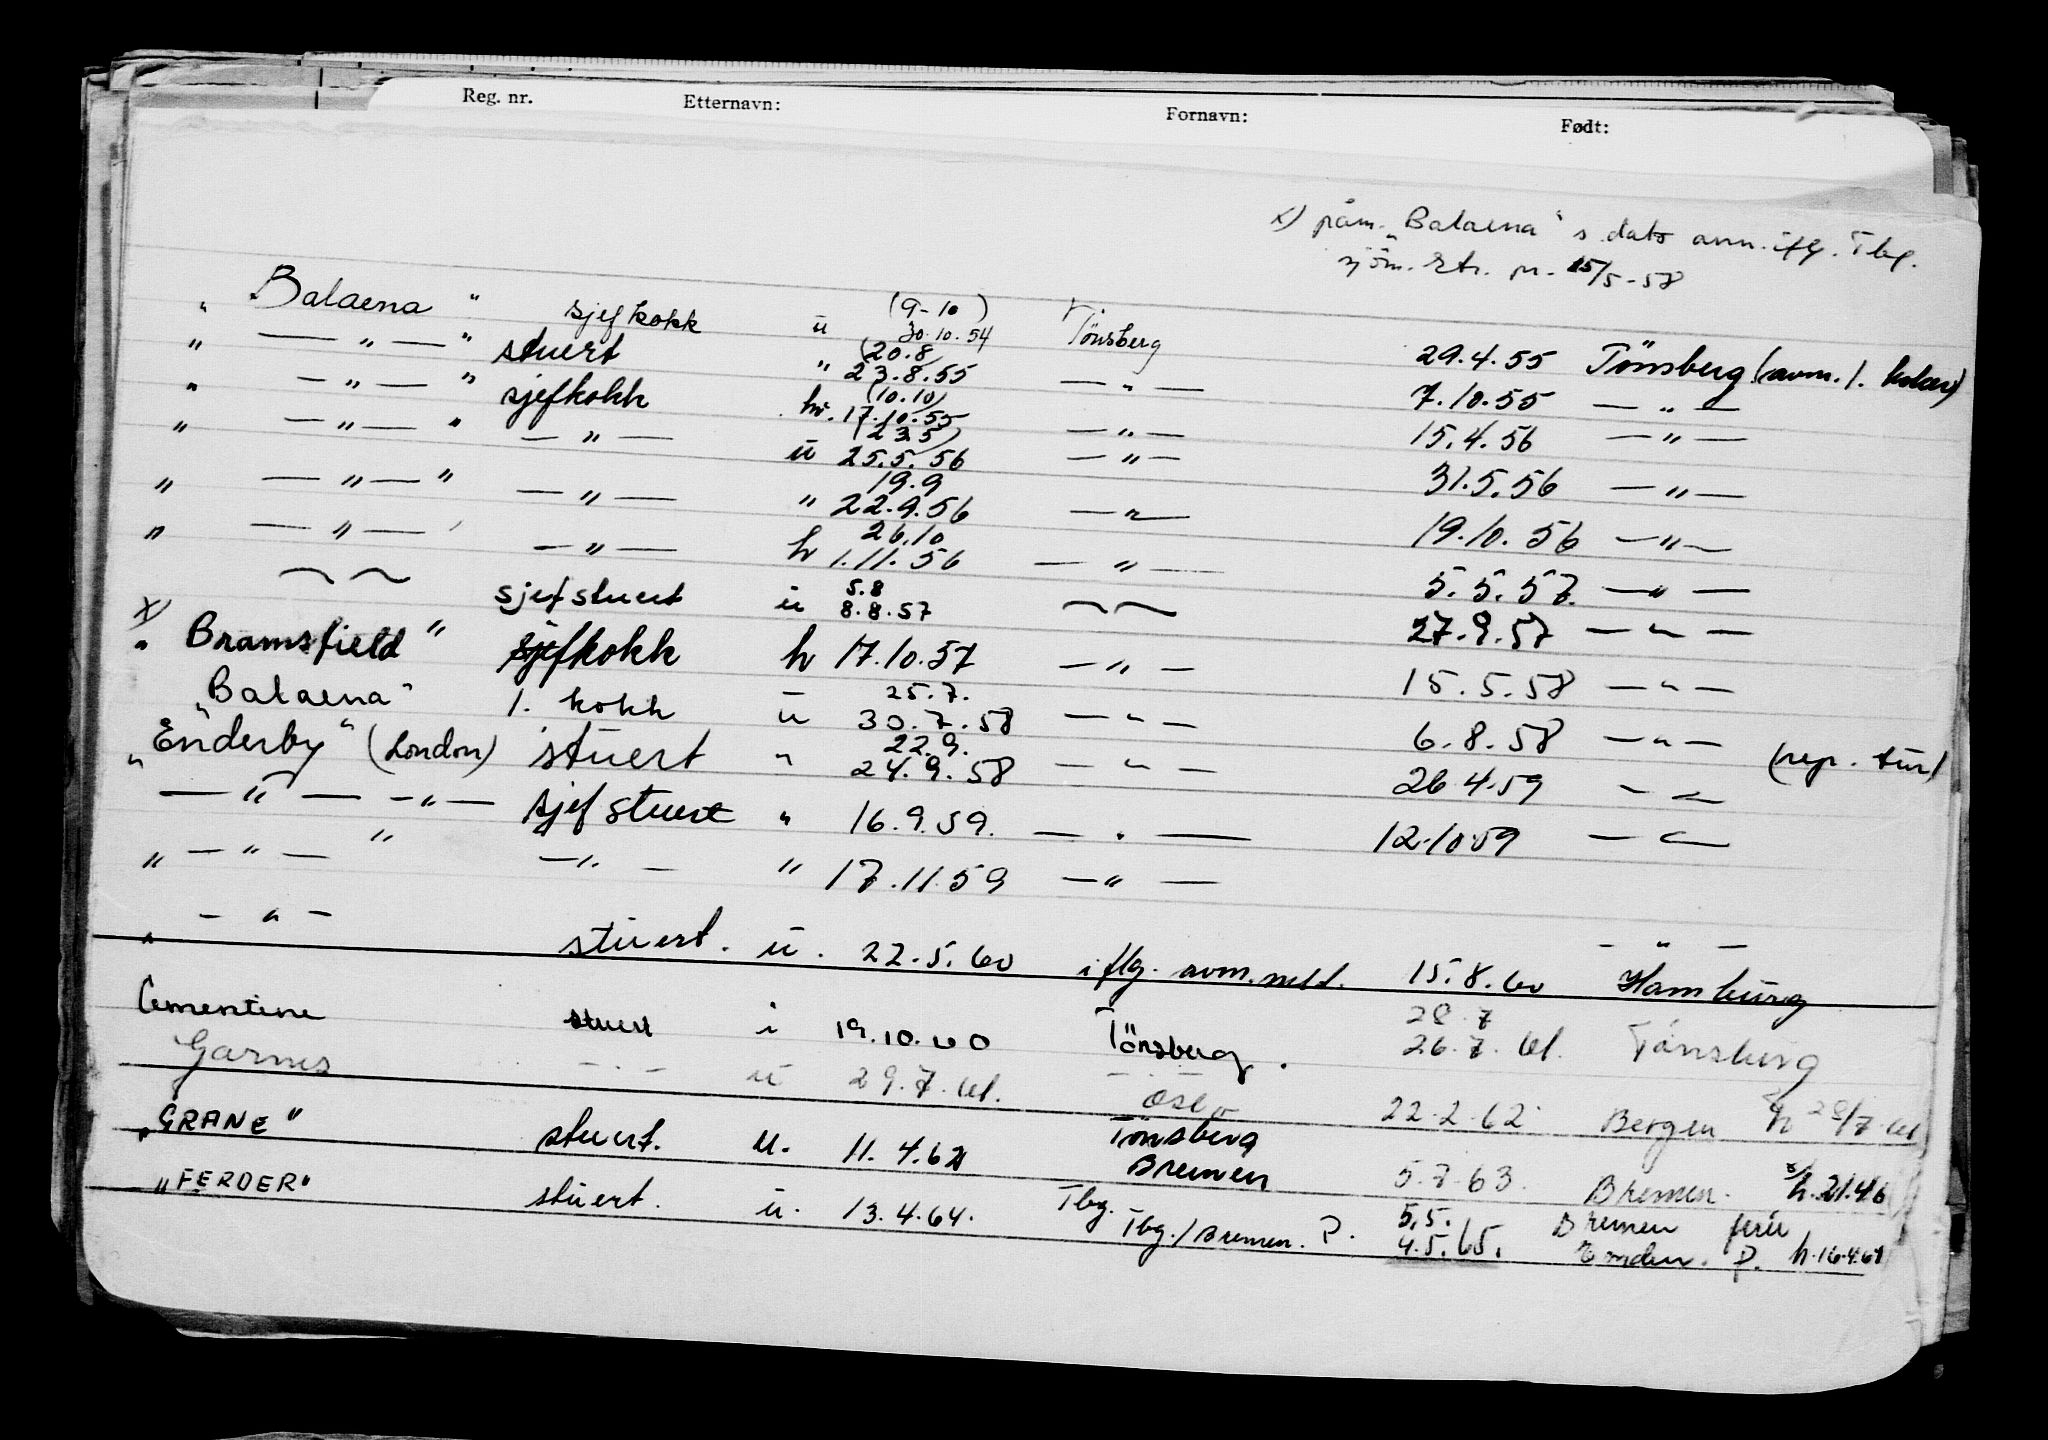 Reg. nr. Etternavn: Fornavn: Født:
x) påm. „Balaena" s. dato avm. iflg. Tbg.
sjöm. ktr. pr. 15/5-58
" Balaena " sjefkokk u (9-10) 30.10.54 Tönsberg 29.4.55 Tönsberg (avm. 1. kokk)
" — " — " stuert " (20.8) 23.8.55 — " — 7.10.55 — " —
" — " — " sjefkokk hv. (10.10) 17.10.55 — " — 15.4.56 — " —
" — " — " — " — u (23.5) 25.5.56 — " — 31.5.56 — " —
" — " — " — " — " 19.9 22.9.56 — " — 19.10.56 — " —
" — " — ' — " — h 26.10 1.11.56 — " — 5.5.57. — " —
⁓ ⁓ sjefstuert u 5.8 8.8.57 ⁓ ⁓ 27.9.57 — " —
x) „ Bramsfield " sjefkokk h 17.10.57 — " — 15.5.58 — " —
„Balaena" 1. kokk u 25.7. 30.7.58 — " — 6.8.58 — " — (rep. tur)
„Enderby" (London) stuert " 22.9. 24.9.58 — " — 26.4.59 — " —
— " — — " — sjefstuert " 16.9.59. — " — 12.10.59 — " —
" — " — " — " — " 17.11.59 — " —
" — " — stuert. u. 22.5.60 iflg. avm.meld. 15.8.60 — " — Hamburg
Cementine stuert i 19.10.60 Tönsberg. 28.7 26.7.61. Tönsberg
Garnes — . — u 29.7.61. Oslo 22.2.62 Bergen h 28/7.61
„GRANE" stuert. u. 11.4.62 Tönsberg Bremen 5.7.63. Bremen. h. 21.4.6
„FERDER" stuert. u. 13.4.64. Tbg. Tbg./Bremen. P. 5.5. 4.5.65. Bremen ferie Emden. P. h.16.4.64